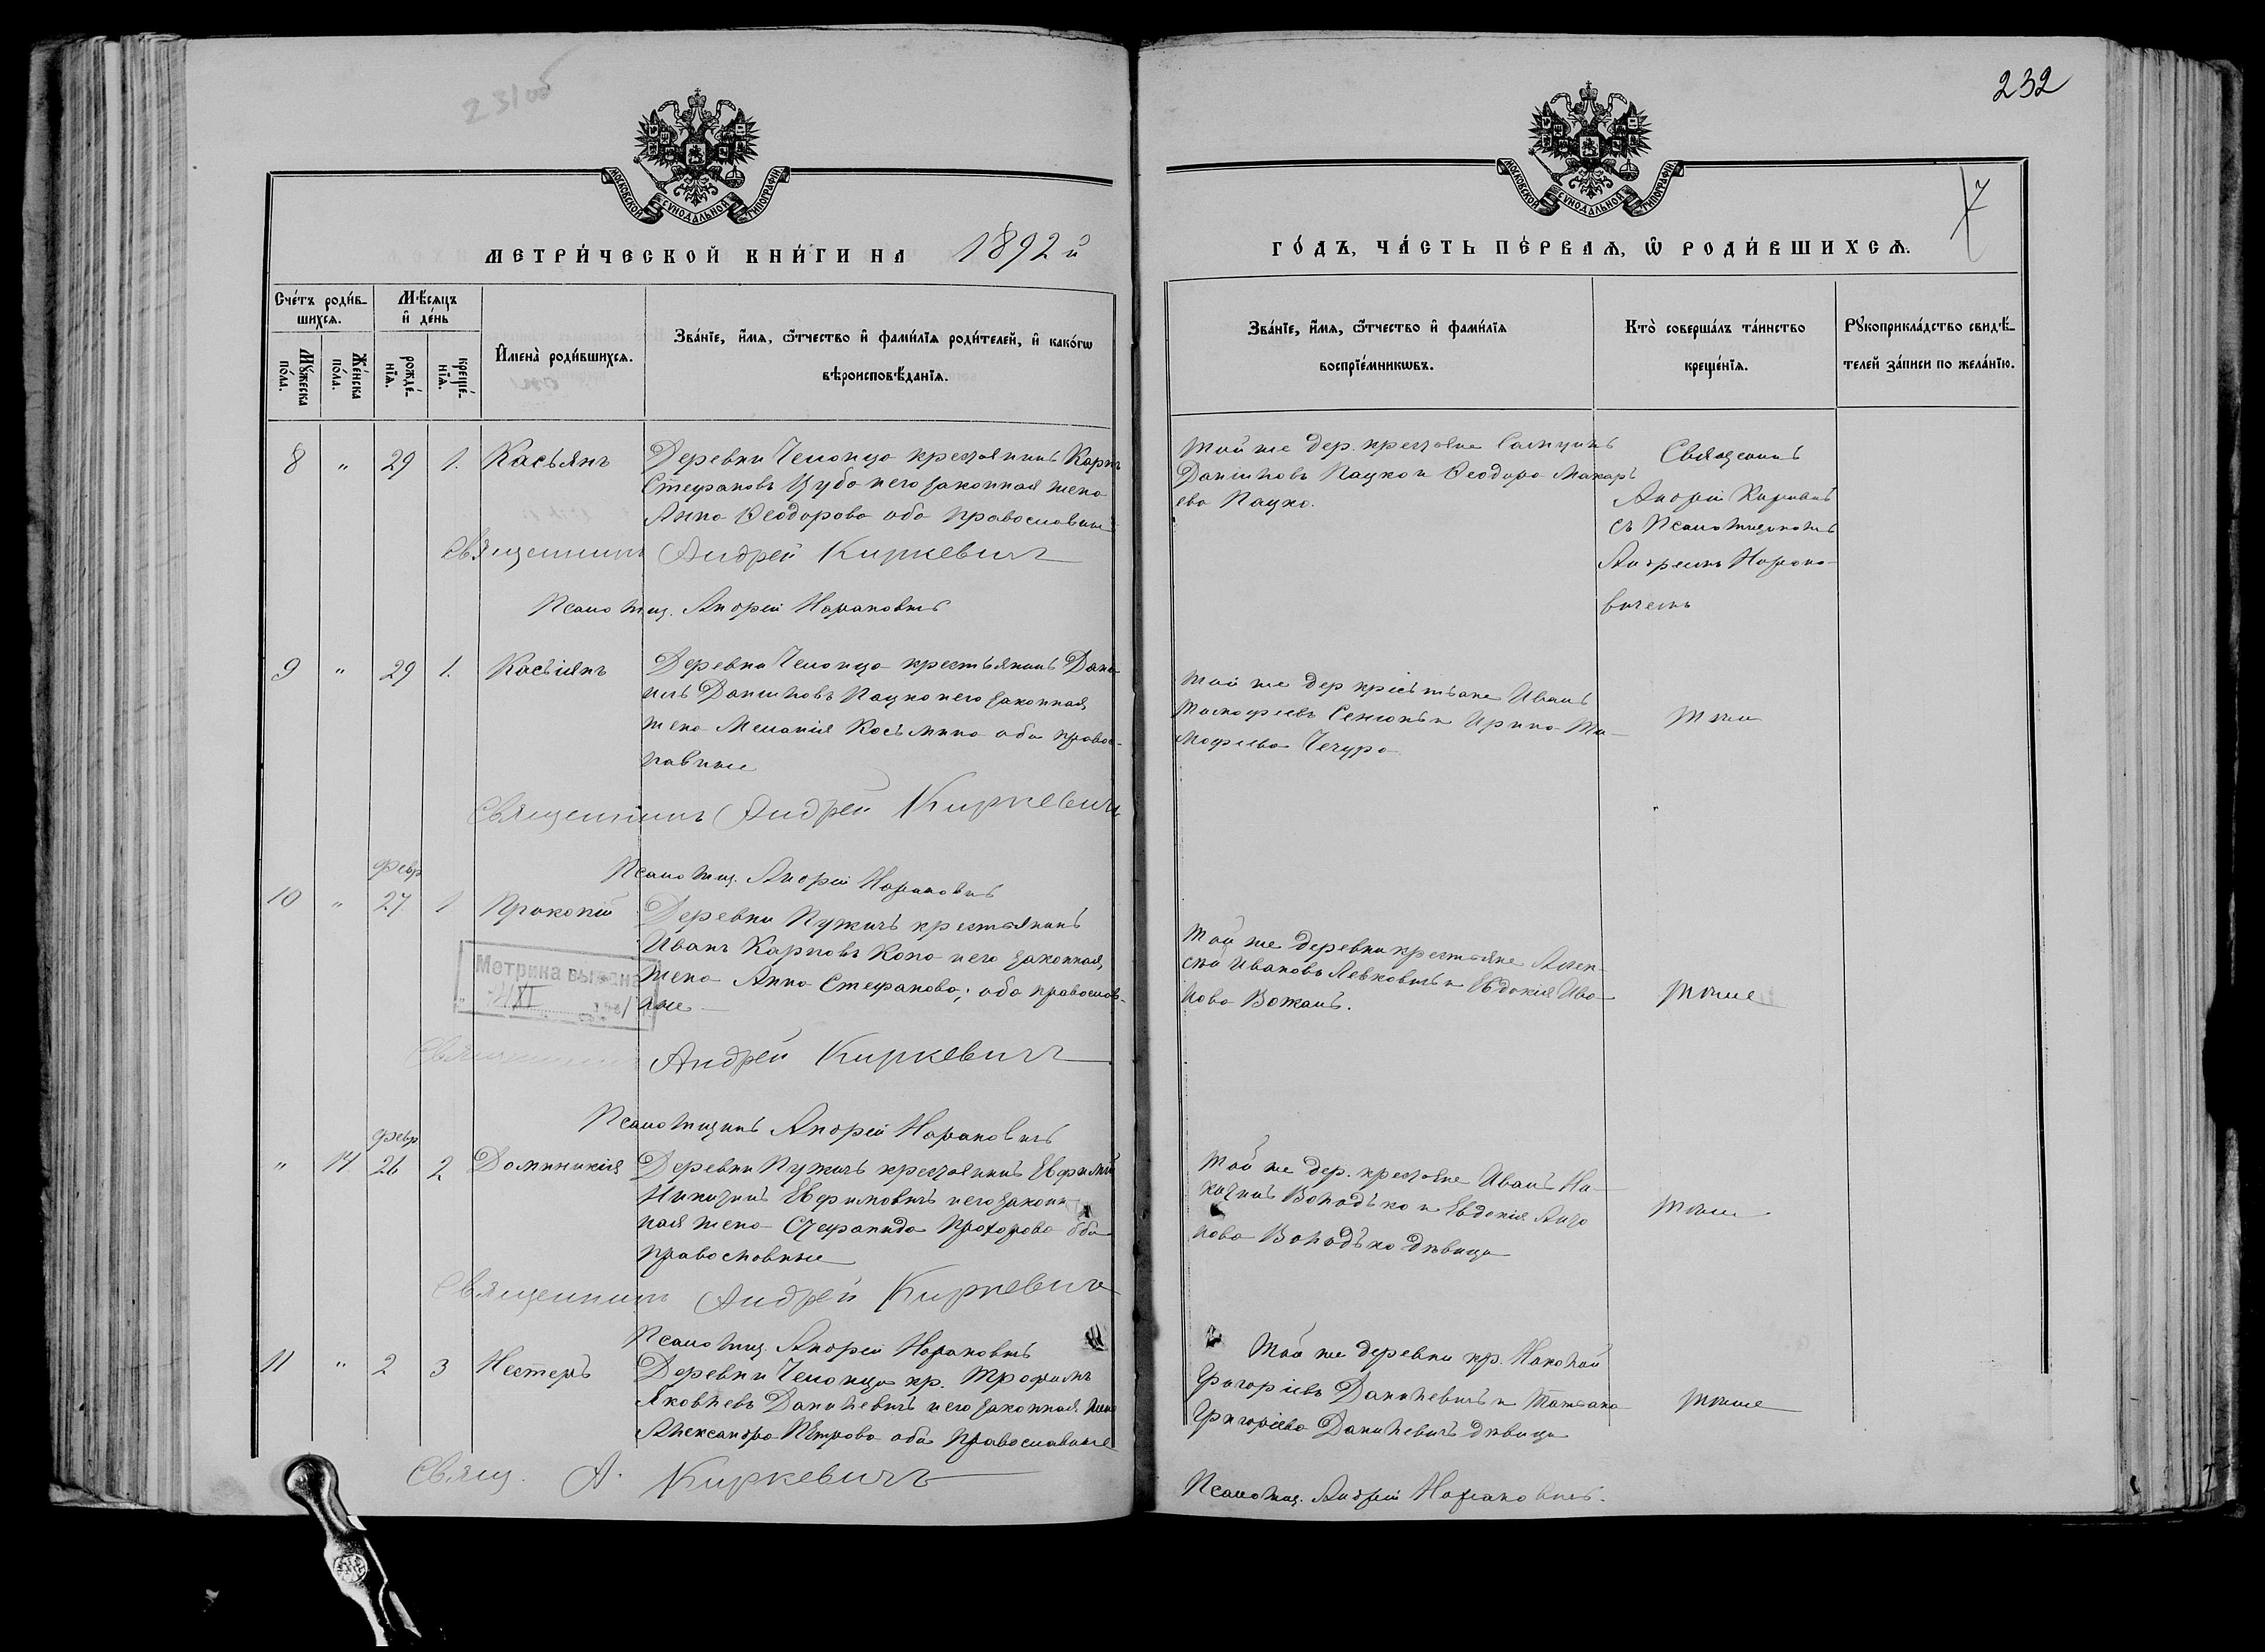 231об
232
7
МОСКОВСКОЙ СѴНОДАЛЬНОЙ ТИПОГРАФІИ
МОСКОВСКОЙ СѴНОДАЛЬНОЙ ТИПОГРАФІИ
МЕТРИ́ЧЕСКОЙ КНИ́ГИ НА 1892 й
ГО́ДЪ, ЧА́СТЬ ПЕ́РВАѦ, Ѿ РОДИ́ВШИХСѦ.
Сче́тъ роди́в-
шихсѧ.
Мꙋ́жеска по́ла.
Же́нска по́ла.
Мѣ́сѧцъ и҆ де́нь
рожде́-нїѧ.
креще́-нїѧ.
И҆мена̀ роди́вшихсѧ.
Зва́нїе, и҆́мѧ, ѻ҆́тчество и҆ фами́лїѧ роди́телей, и҆ како́гѡ
вѣроисповѣ́данїѧ.
Зва́нїе, и҆́мѧ, ѻ҆́тчество и҆ фами́лїѧ
воспрїе́мникѡвъ.
Кто̀ соверша́лъ та́инство
креще́нїѧ.
Рꙋкоприкла́дство свидѣ́-
телей за́писи по жела́нїю.
8 " 29 1. Касьянъ
Деревни Чемонцо крестьянинъ Карпъ
Стефановъ Цуба и его законная жена
Анна Ѳеодорова оба православные
Священникъ Андрей Киркевичъ
Псаломщ. Андрей
Той же дер. крестьяне
Даниловъ Пацко и Ѳеодора Макарь
ева Пацко.
Священникъ
Андрей Киркевичъ
съ Псаломщикомъ
Андреемъ
вичемъ
9 " 29 1. Касіянъ
Деревни Чемонцо крестьянинъ Дани-
илъ Даниловъ Пацко и его законная
жена Меланія Косьмина оба правос-
лавные
Священникъ Андрей Киркевичъ
Псаломщ. Андрей
Той же дер крестьяне Иванъ
Тимофеевъ Сенюкъ и Ирина Ти-
мофеева Чечуро
Тоже
февр
10 " 27 1 Прокопій
Деревни Пужичъ крестьянинъ
Иванъ Карповъ Копо и его законная
жена Анна Стефанова; оба православ-
ные
Метрика выдана
Священникъ Андрей Киркевичъ
Псаломщикъ Андрей
Той же деревни крестьяне Алек-
сѣй Ивановъ Левковичъ и Евдокія Ива-
нова Вожанъ.
Тоже
февр
" 14 26 2 Доминикія
Деревни Пужичъ крестьянинъ Евфимій
Никитинъ Евфимовичъ и его закон
ная жена Стефанида Прохорова оба
православные
Священникъ Андрей Киркевичъ
Псаломщ. Андрей
Той же дер. крестьяне Иванъ Ни-
китинъ Володько и Евдокія Анто
нова Володько дѣвица
Тоже
11 " 2 3 Несторъ
Деревни Чемонцо кр. Трофимъ
Яковлевъ Данилевичъ и его законная жена
Александра Петрова оба православные
Свящ. А. Киркевичъ
Той же деревни кр. Николай
Григоріевъ Данилевичъ и Татіана
Григоріева Данилевичъ дѣвица
Тоже
Псаломщ. Андрей